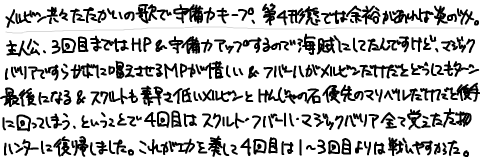 メルビン共々たたかいの歌で守備力キープ、第4形態では余裕があれば炎のツメ。
主人公、3回目まではHP&守備力アップするので海賊にしてたんですけど、マジック
バリアですらガボに唱えさせるMPが惜しい&フバーハがメルビンだけだとどうしてもターン
最後になる&スクルトも素早さ低いメルビンとけんじゃの石優先のマリベルだけだと後手
に回ってしまう、ということで4回目はスクルト・フバーハ・マジックバリア全て覚えた魔物
ハンターに復帰しました。これが功を奏して4回目は1〜3回目よりは戦いやすかった。